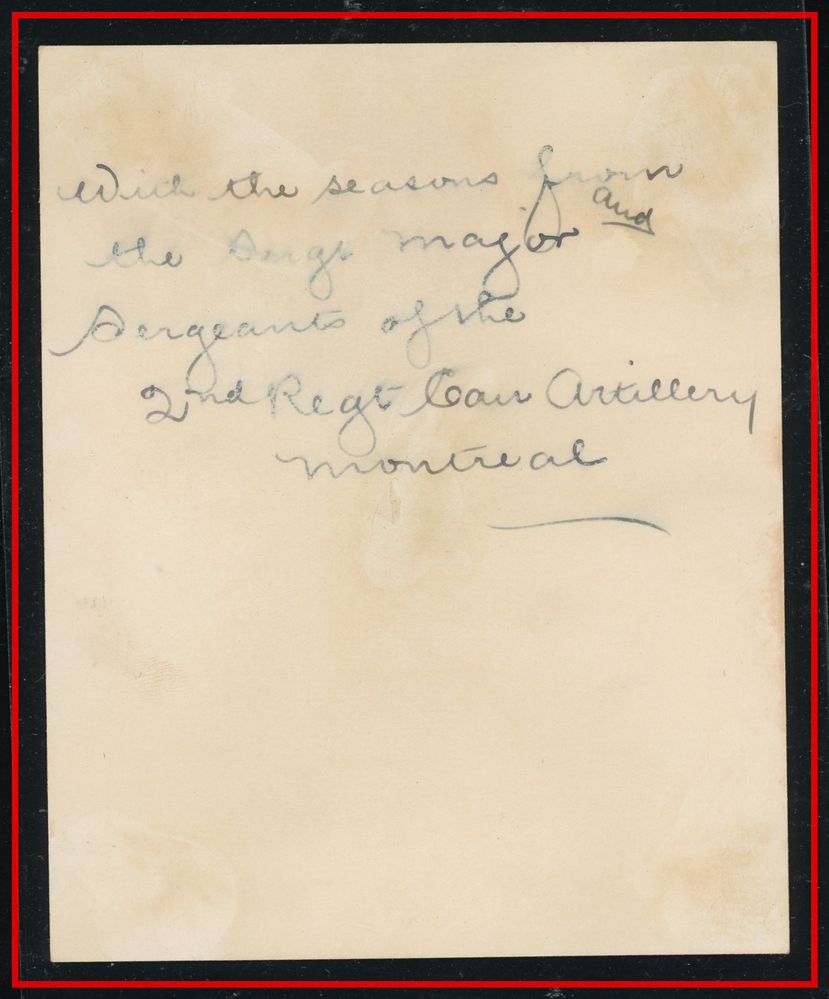 With the seasons from
the Sergt Major and
Sergeants of the
2nd Regt Can Artillery
Montreal